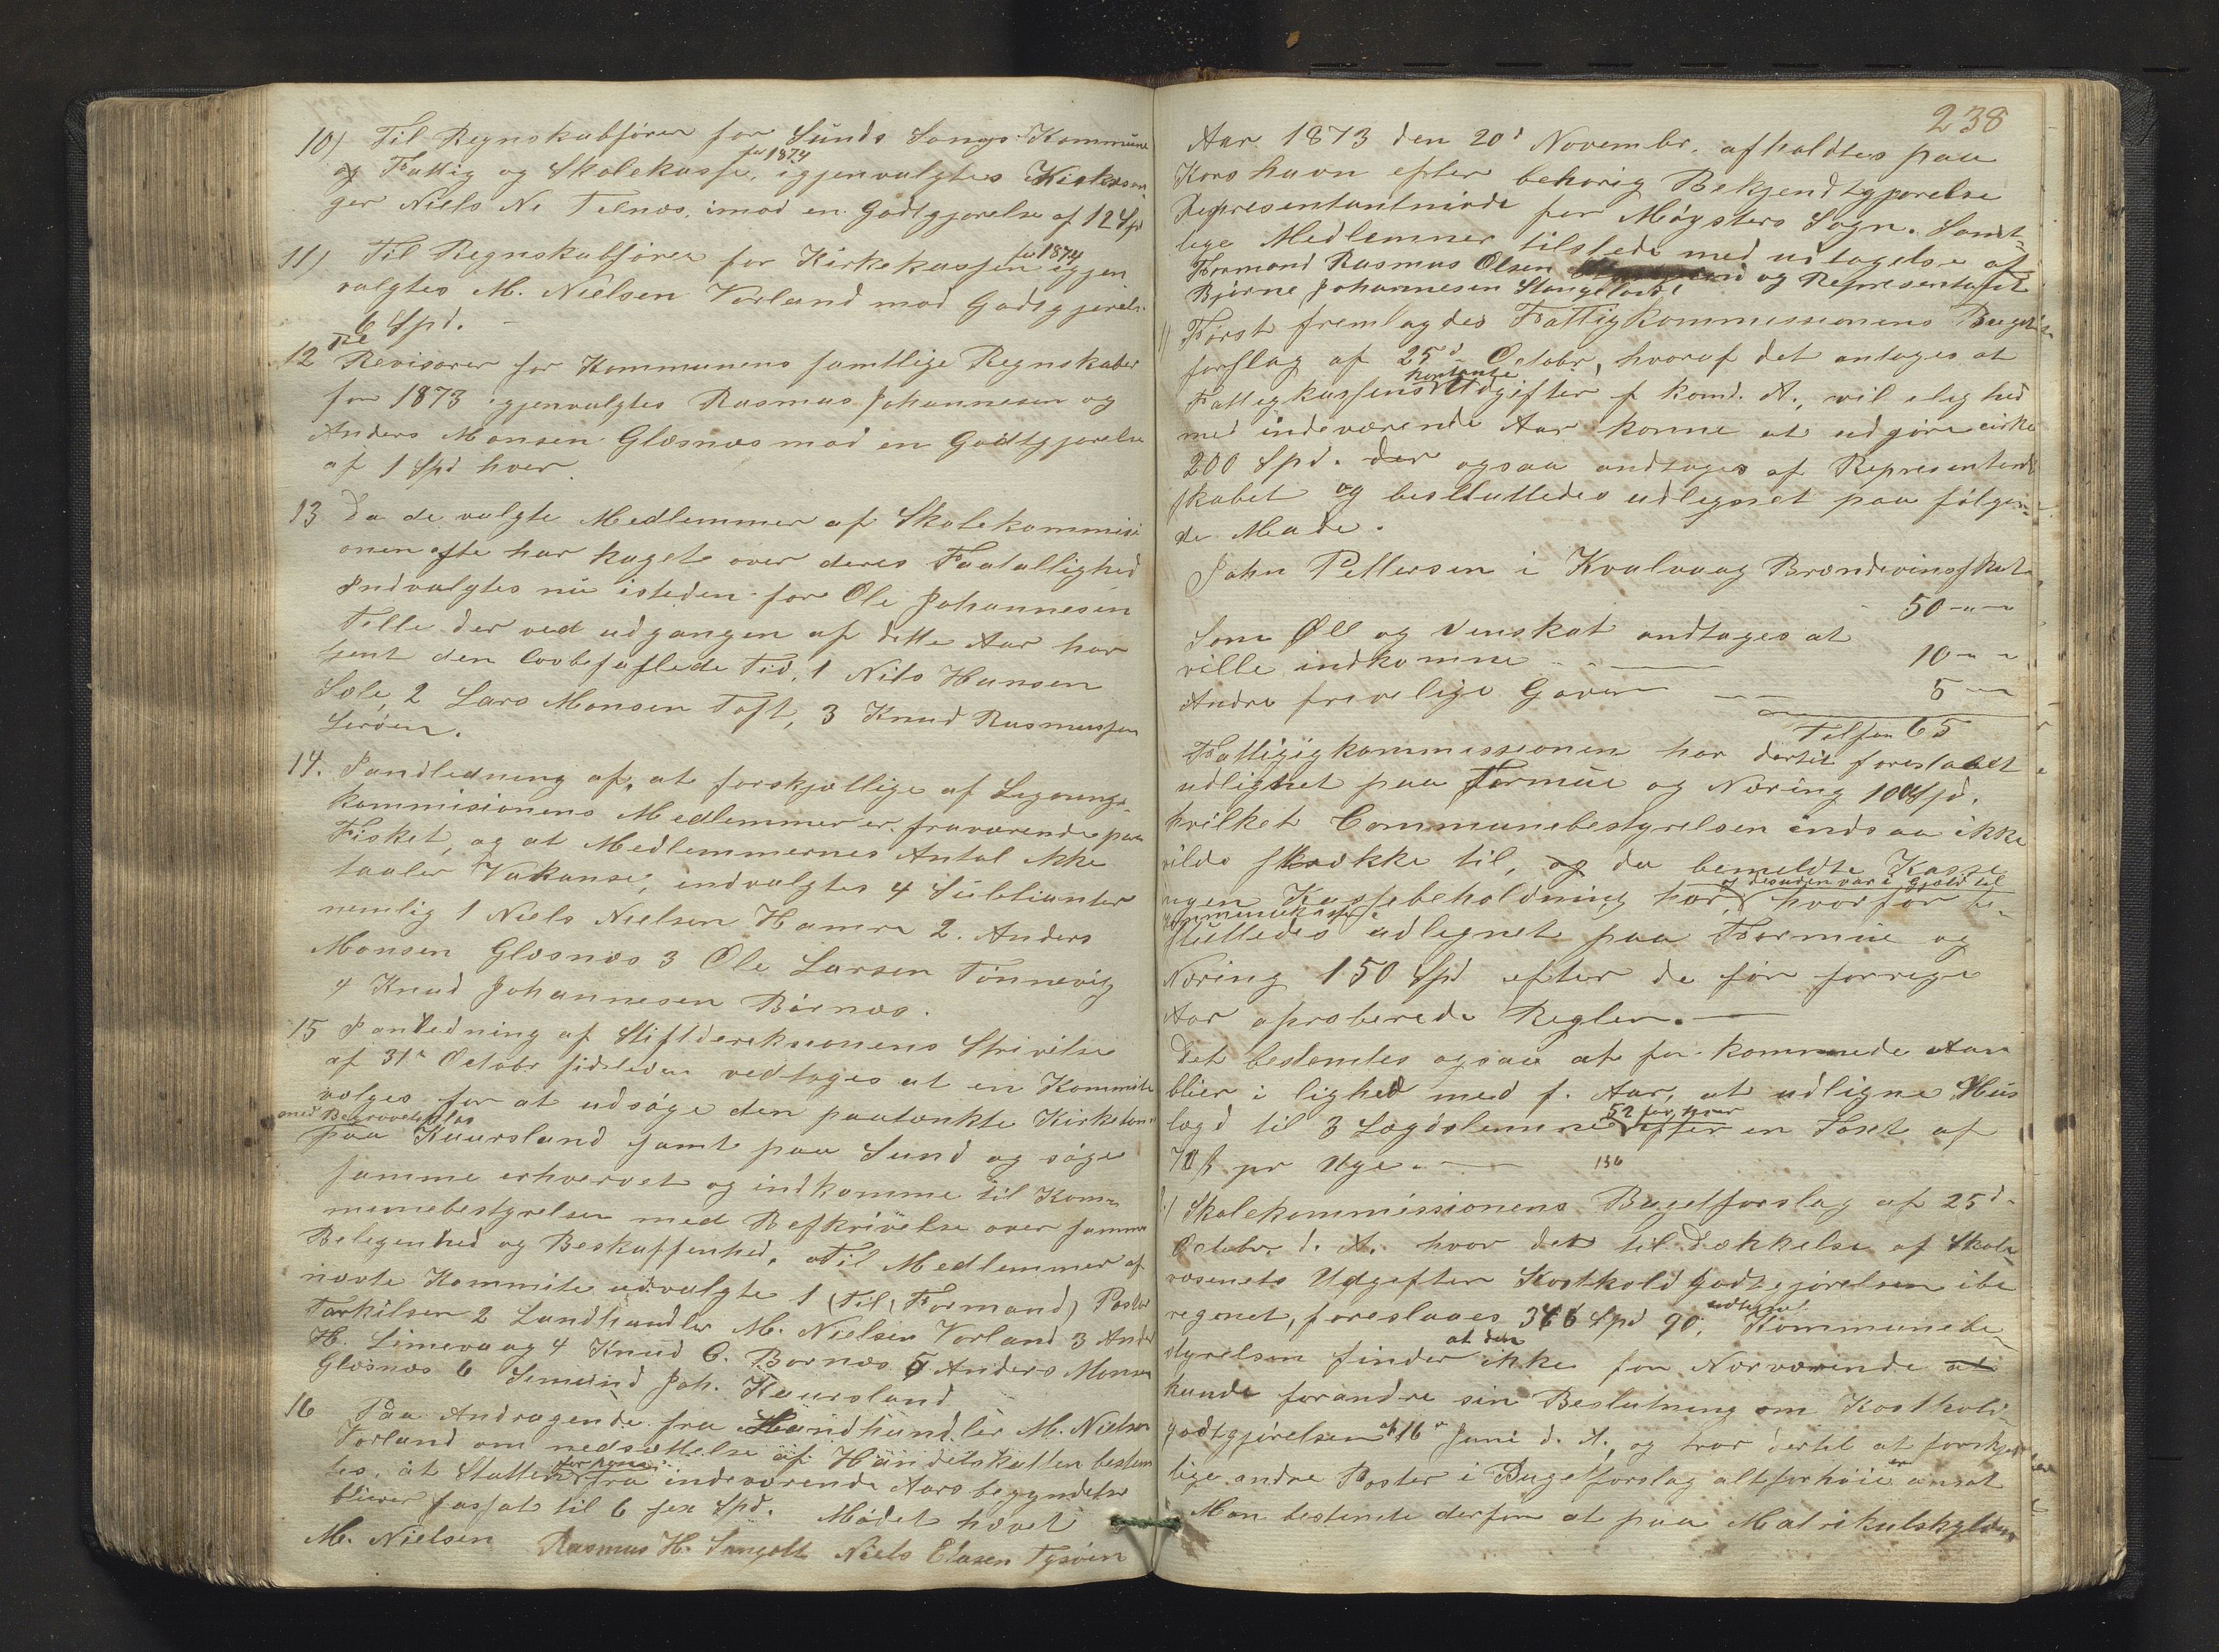 10) Til Regnskabfører for Sunds Songs Kommune
og Fattig og Skolekasse, for 1874 igjenvalgtes Kirkesan
ger Niels Ni Telnæs, imod en Godtgjørelse af 12 Spd
11) Til Regnskabfører for Kirkekassen for 1874 igjen
valgtes M. Nielsen Vorland mod Godtgjørelse
6 Spd. –
12 Til Revisorer for Kommunens samtlige Regnskaber
for 1873 igjenvalgtes Rasmus Johannesen og
Anders Monsen Glæsnæs mod en Godtgjørelse
af 1 Spd hver
13 Da de valgte Medlemmer af Skolekommisi
onen ofte har klaget over deres Faatallighed
Indvalgtes nu isteden for Ole Johannesen
Telle der ved udgangen af dette Aar har
tjent den lovbefaflede Tid. 1 Nils Hansen
Sæle, 2 Lars Monsen Toft, 3 Knud Rasmussen
Lerøen.
14. I andledning af, at forskjællige af Lignings-
kommisionens Medlemmer er fraværende paa
Fisket, og at Medlemmernes Antal ikke
taaler Vakanse, indvalgtes 4 Subtianter
nemlig 1 Niels Nielsen Hamre 2. Anders
Monsen Glæsnæs 3 Ole Larsen Tønnevig
4 Knud Johannesen Børnæs.
15 I anledning af Stiftdireksionens Skrivelse
af 31te Octobr sidsleden vedtoges at en Kommite
vælges for at udsøge den paatænkte Kirketomt
med Begravelsplas
paa Kaursland samt paa Sund og søge
samme erhvervet og indkomme til Kom-
munebestyrelsen med Beskrivelse over samme
Belegenhed og Beskaffenhed. Til Medlemmer af
nævte Kommite udvalgte 1 (til Formand) Pastor
Torkilsen 2 Landhandler M. Nielsen Vorland 3 Anders
H. Limevaag 4 Knud O. Bornæs 5 Anders Monsen
Glæsnæs 6 Simund Joh. Kaursland
16 Paa Andragende fra Handhandler M. Nielsen
Vorland om nedsættelse af Handelskatten bestem
tes, at Skatten for ham fra indeværende Aars begyndelse
bliver fassat til 6 sex Spd. Mødet hævet
M. Nielsen Rasmus H. Sangolt Niels Clasen Tysøen
238
Aar 1873 den 20d Novembr. afholdtes paa
Korshavn efter behørig Bekjendtgjørelse
Representantmøde for Møgsters Sogn. Samt-
lige Medlemmer tilstede med udtagelse af
Formand Rasmus Olsen og Representant
Bjørne Johannesen Stangeland
1) Først fremlagdes Fattigkommissionens Buget
forslag af 25d Octobr, hvoraf det antages at
Fattigkassens kontante Udgifter f komd. A., vil i lighed
med indeværende Aar komme at udgjøre cirka
200 Spd. der ogsaa andtoges af Representent
skabet og besluttedes udlignet paa følgen-
de Made.
John Pettersen i Kvalvaag Brændevinsskat
50 – " – "
Som Øll og Venskat andtages at
ville indkomme – 10 – " – "
Andre frivelige Gaver – 5 – "
Tilsam 65
Fattigigkommissionen har dertil foreslaaet
udlignet paa Formue og Næring 100 Spd.
hvilket Communebestyrelsen indsaa ikke
vilde strække til, og da bemeldte Kasse
ingen Kassebeholdning har, og desuden var i gjæld til
kommunekassen. hvorfor be-
sluttedes udlignet paa Formue og
Næring 150 Spd efter de for forrige
Aar aproberede Regler. —
Det bestemtes ogsaa at for kommende Aar
blier i lighed med f. Aar, at udligne Hus
lægd til 3 Lægdslemmer 52 for hver efter en Taxt af
72 ß pr Uge. — 156
2) Skolekommissionens Bugetforslag af 25d
Octobr. d. A. hvor det til Dækkelse af Skole
væsenets Udgifter Kostholdgodtgjørelsen ibe
regnet, foreslaaes 346 Spd 90, udlignet. Kommunebe-
styrelsen finder at den ikke for Nærværende at
kunde forandre sin Beslutning om Kosthold-
godtgjørelsen af 16de Juni d. A., og tror dertil at forskjæl
lige andre Poster i Bugetforslag altforhøie er ansat
Man bestemte derfor at paa Matrikulskylden